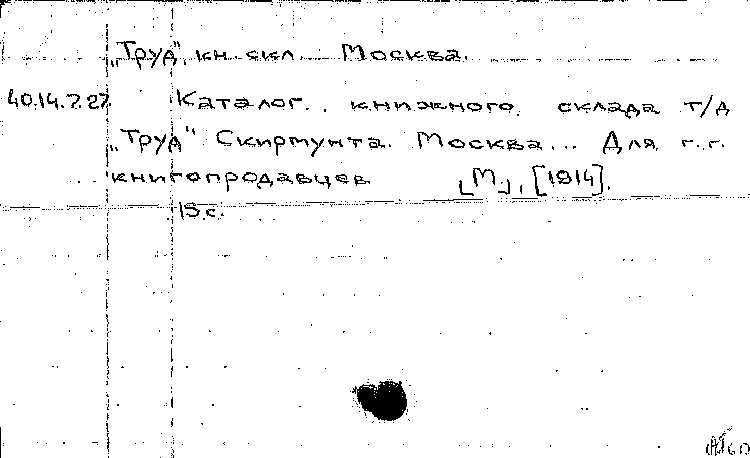 „Труд", кн. скл. Москва.
40.14.7.27 Каталог.. книжного склада т/д
„Труд" Скирмунта. Москва... Для г.г.
книгопродавцев [М.], [1914].
15 с.